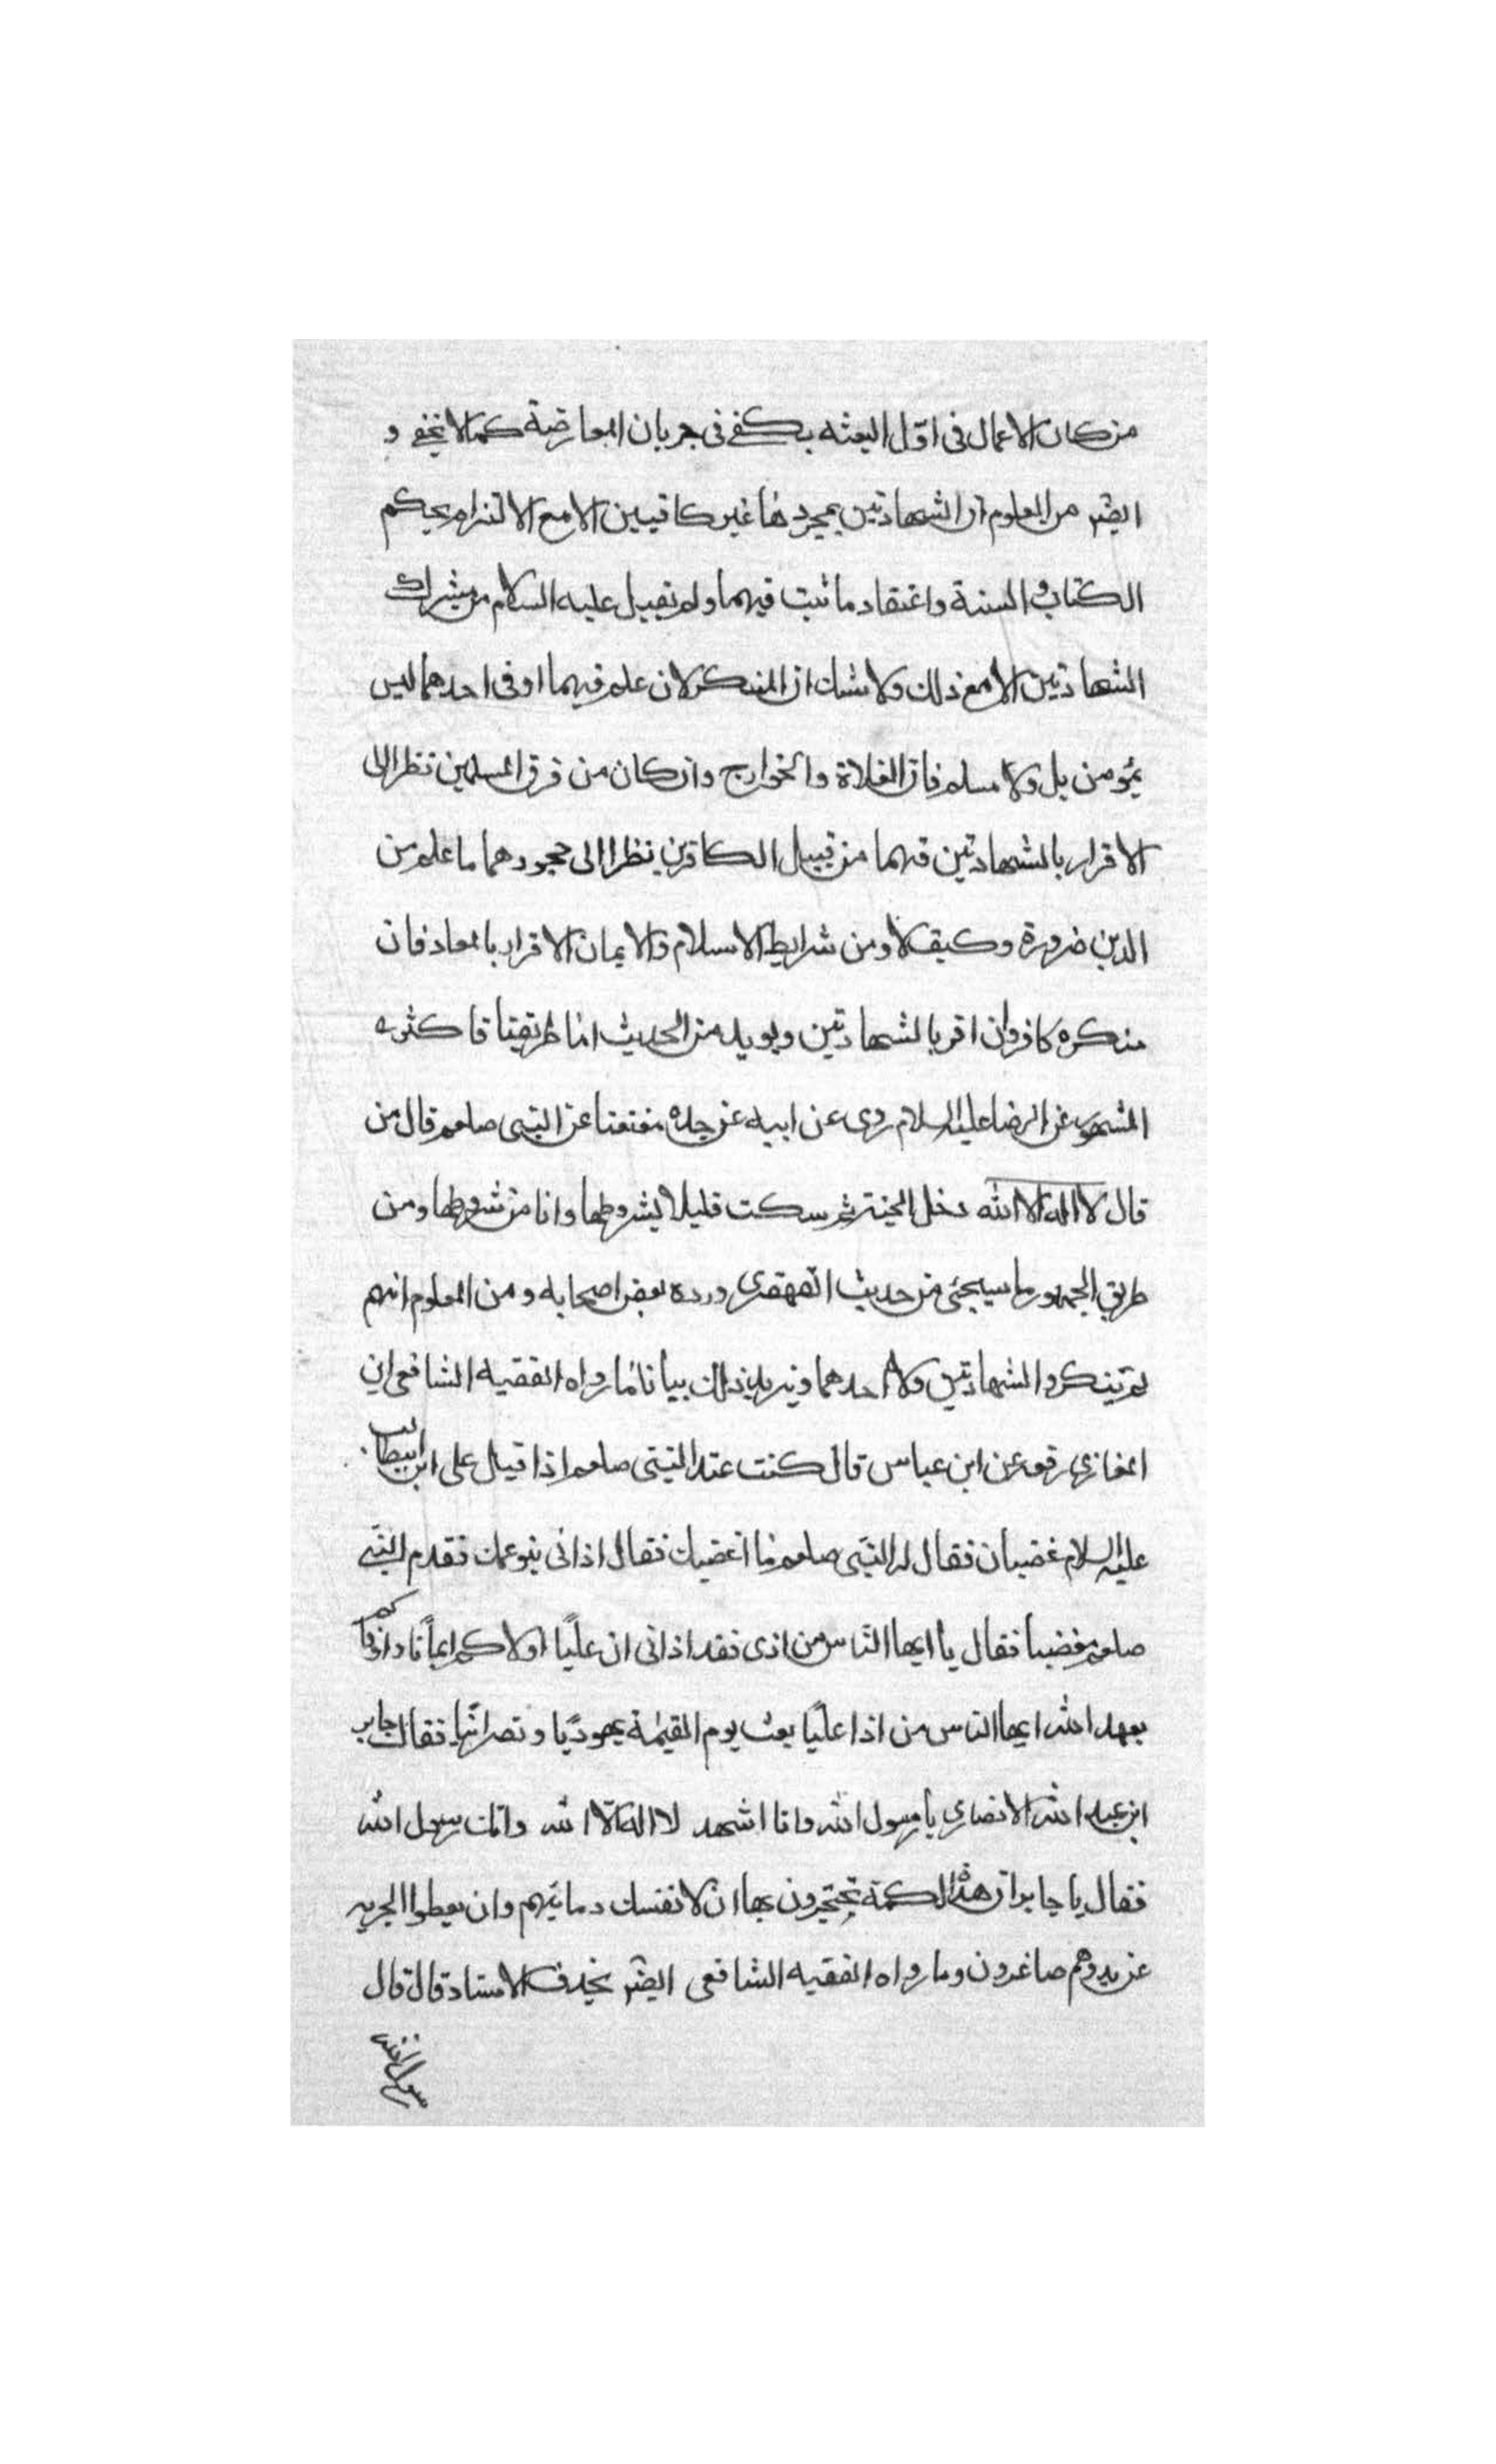 من كان الاعمال فى اوّل البعثه يكفى فى جريان المعارضة كما لا يخفى و
ايضر من المعلوم ان الشهادتين بمجردها غير كافيين الا مع الالتزام بحكم
الكتاب و السنة واعتقاد ما ثبت فيهما ولم يقبل عليه السلام من مشرك
الشهادتين الا مع ذلك ولا شك ان المنكر لان علم فيهما او فى احدهما ليس
بمؤمن بل ولا مسلم فان الغلاة والخوارج وان كان من فرق المسلمين نظرا الى
الاقرار بالشهادتين فهما من قبيل الكافرين نظرا الى جحودهما ما علم من
الدين ضرورة وكيف لا ومن شرايط الاسلام والايمان الاقرار بالمعاد فان
منكره كافر وان اقر بالشهادتين ويويد من الحديث اما طريقنا فاكثره
المشهور عن الرضا عليه السلام روى عن ابيه عن جده معنعنا عن النبى صلعم قال من
قال لا اله الا الله دخل الجنة ثم سكت قليلا بشروطها وانا من شروطها ومن
طريق الجمهور ما سيجئ من حديث القهقرى ورده بعض اصحابه ومن المعلوم انهم
لم ينكروا الشهادتين ولا احدهما ويزيد ذلك بيانا ما رواه الفقيه الشافعى ابن
المغازى رفعه عن ابن عباس قال كنت عند النبى صلعم اذا قيل على ابن ابيطالب
عليه السلام غضبان فقال له النبى صلعم ما اغضبك فقال اذانى بنو عمك فقدم النبى
صلعم مغضبا فقال يا ايها الناس من اذى فقد اذانى ان عليّا اولاكم ايمانا واوفاكم
بعهد الله ايها الناس من اذا عليّا بعث يوم القيمة يهوديّا و نصرانيّا فقال جابر
ابن عبد الله الانصارى يا رسول الله وانا اشهد لا اله الا الله وانك رسول الله
فقال يا جابر ان هذه الكمة يحتجرون بها ان لا تفسك دمائهم وان يعطوا الجزيه
عن يد وهم صاغرون وما رواه الفقيه الشافعى ايضر بحذف الاسناد قال قال
رسول الله